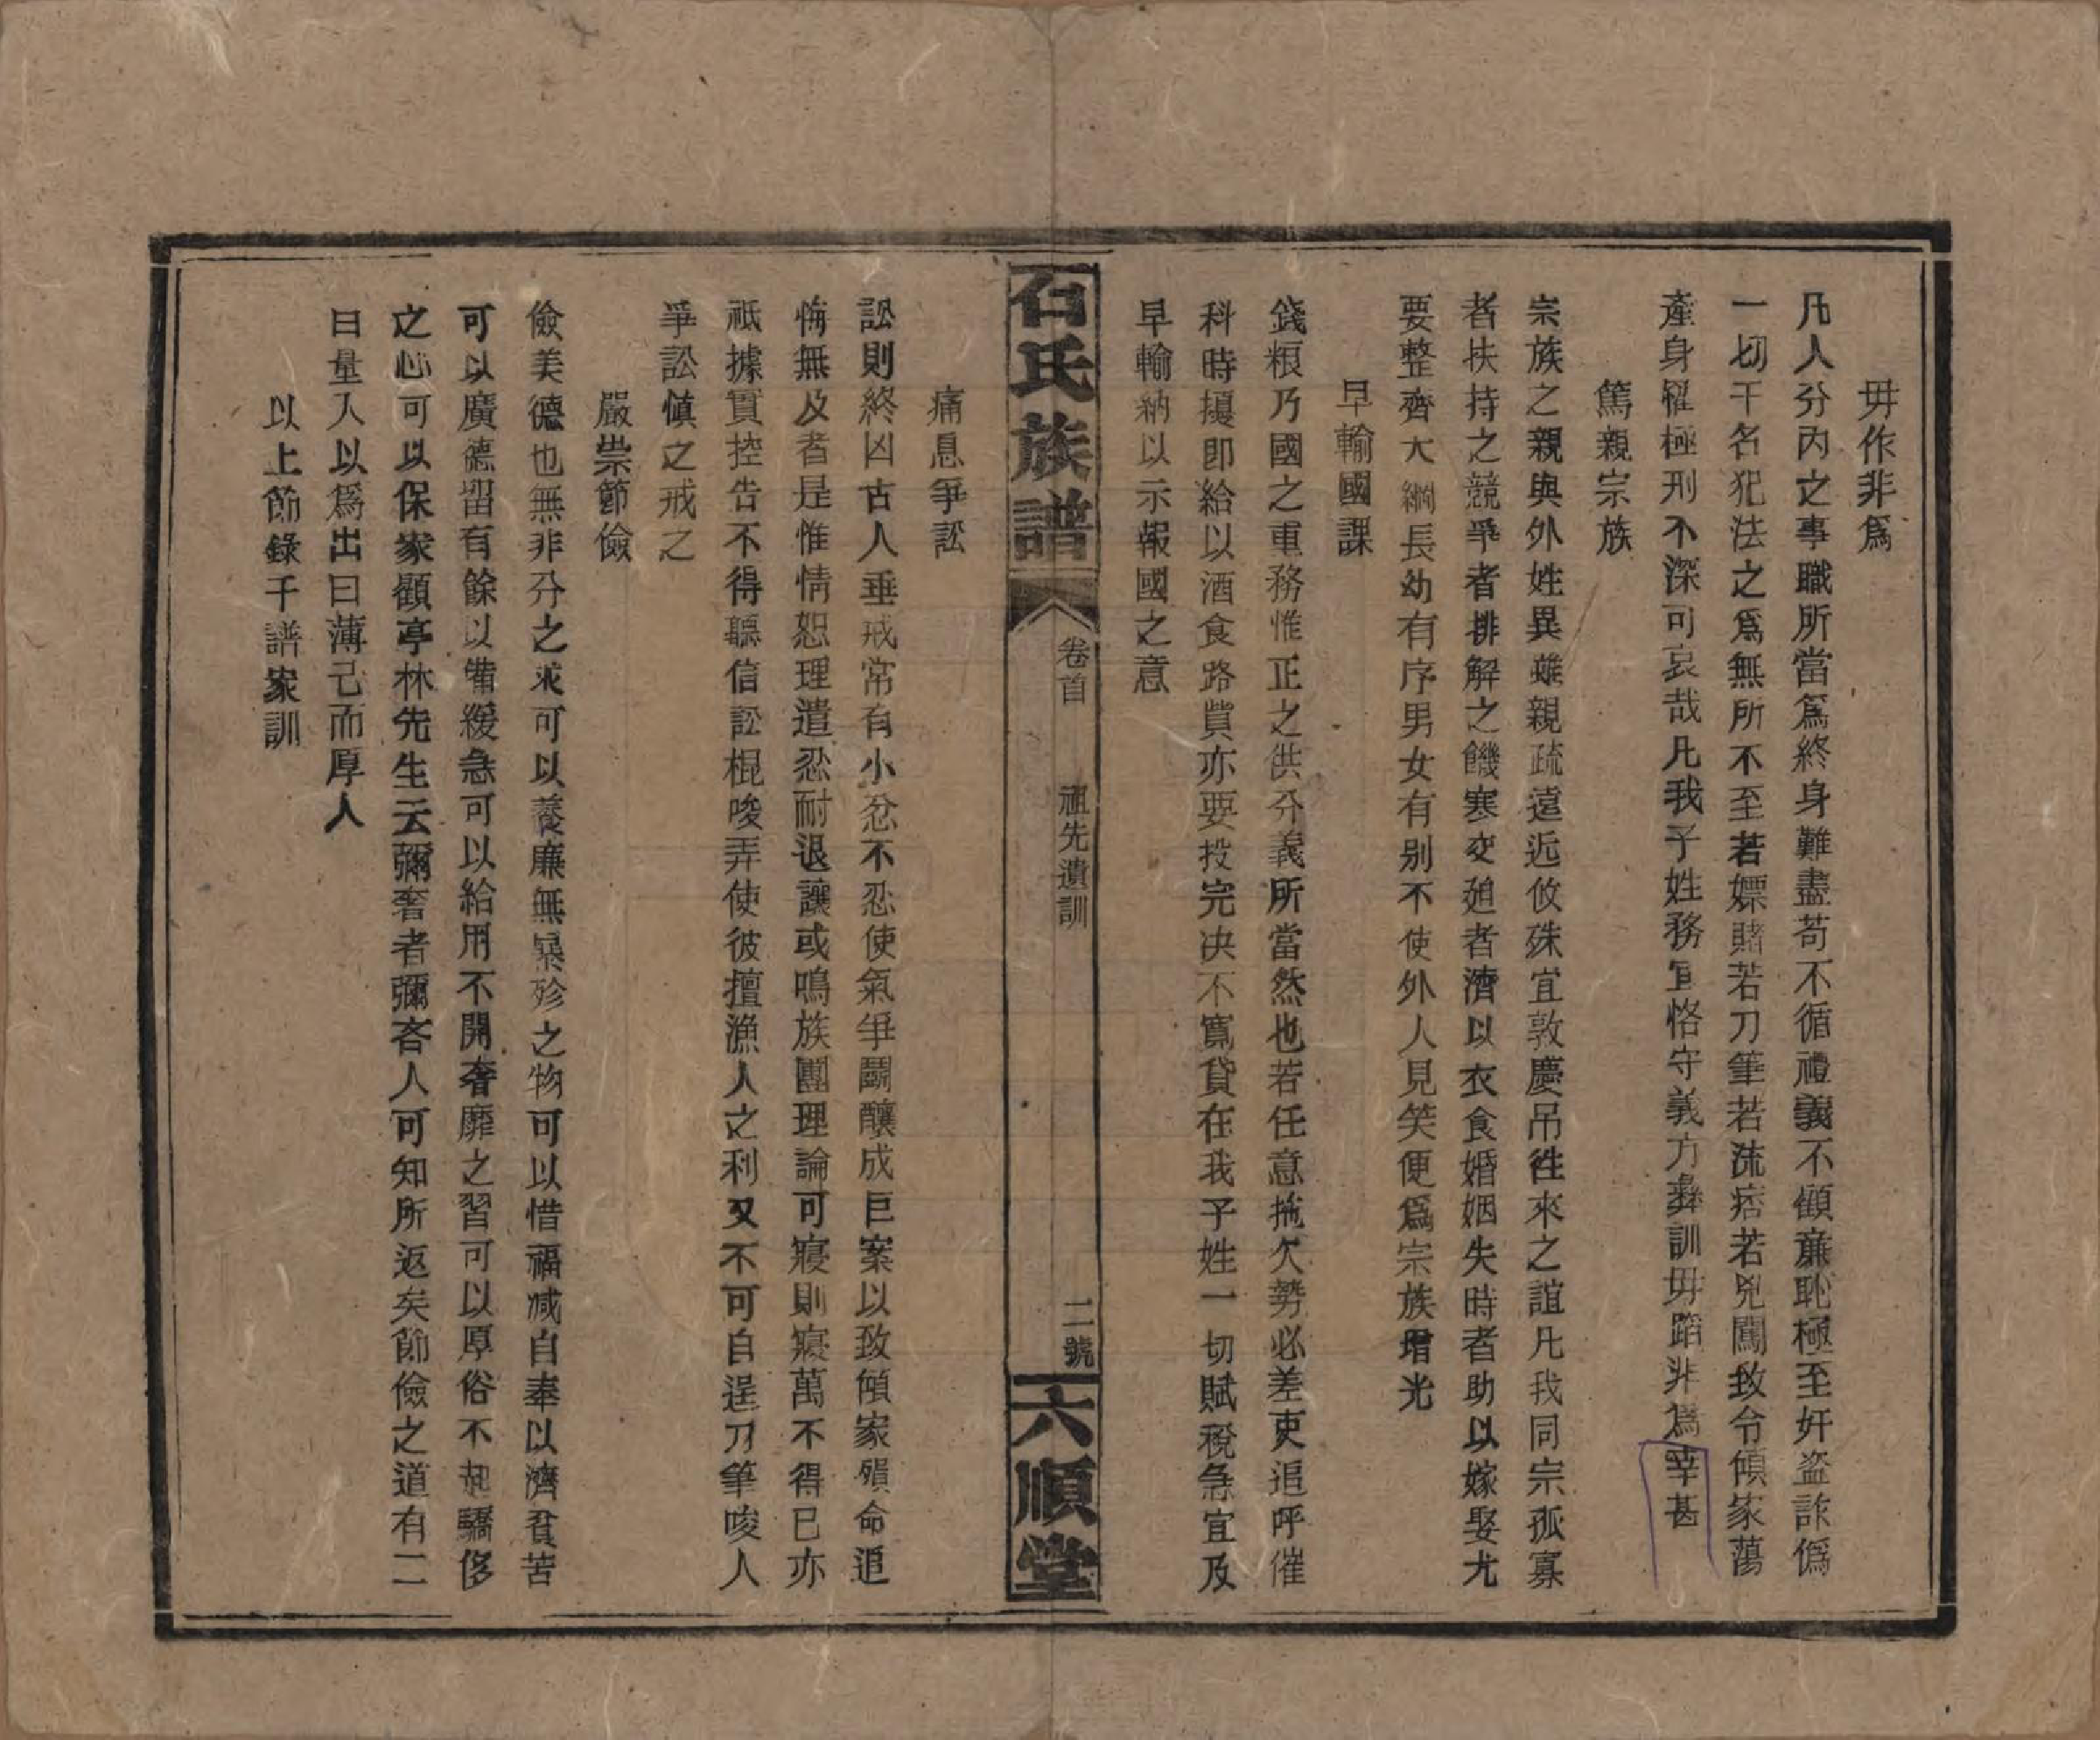 毋作非爲
凡人分內之事職所當爲終身難盡苟不循禮義不顧亷恥極至奸盗詐僞
一切干名犯法之爲無所不至若嫖賭若刀筆若流痞若兇闖致令傾家蕩
產身罹極刑不深可哀哉凡我子姓務宜恪守義方彝訓毋蹈非爲幸甚
篤親宗族
宗族之親與外姓異雖親疏遠近攸殊宜敦慶吊徃來之誼凡我同宗孤寡
者扶持之競爭者排解之饑寒交廹者濟以衣食婚姻失時者助以嫁娶尤
要整齊大綱長幼有序男女有别不使外人見笑便爲宗族增光
早輸國課
錢粮乃國之重務惟正之供分義所當然也若任意拖欠勢必差吏追呼催
科時擾即給以酒食路貲亦要投完决不寬貸在我子姓一切賦稅急宜及
早輸納以示報國之意
石氏族譜
卷首
祖先遺訓
二號
六順堂
痛息爭訟
訟則終凶古人垂戒常有小忿不忍使氣爭鬭釀成巨案以致傾家殞命追
悔無及者是惟情恕理遣忍耐退讓或鳴族團理論可寢則寢萬不得已亦
祇據實控告不得聽信訟棍唆弄使彼擅漁人之利又不可自逞刀筆唆人
爭訟愼之戒之
嚴崇節儉
儉美德也無非分之求可以養廉無暴殄之物可以惜福减自奉以濟貧苦
可以廣德留有餘以備緩急可以給用不開奢靡之習可以厚俗不起驕侈
之心可以保家顧亭林先生云彌奢者彌吝人可知所返矣節儉之道有二
曰量入以爲出曰薄己而厚人
以上節錄千譜家訓